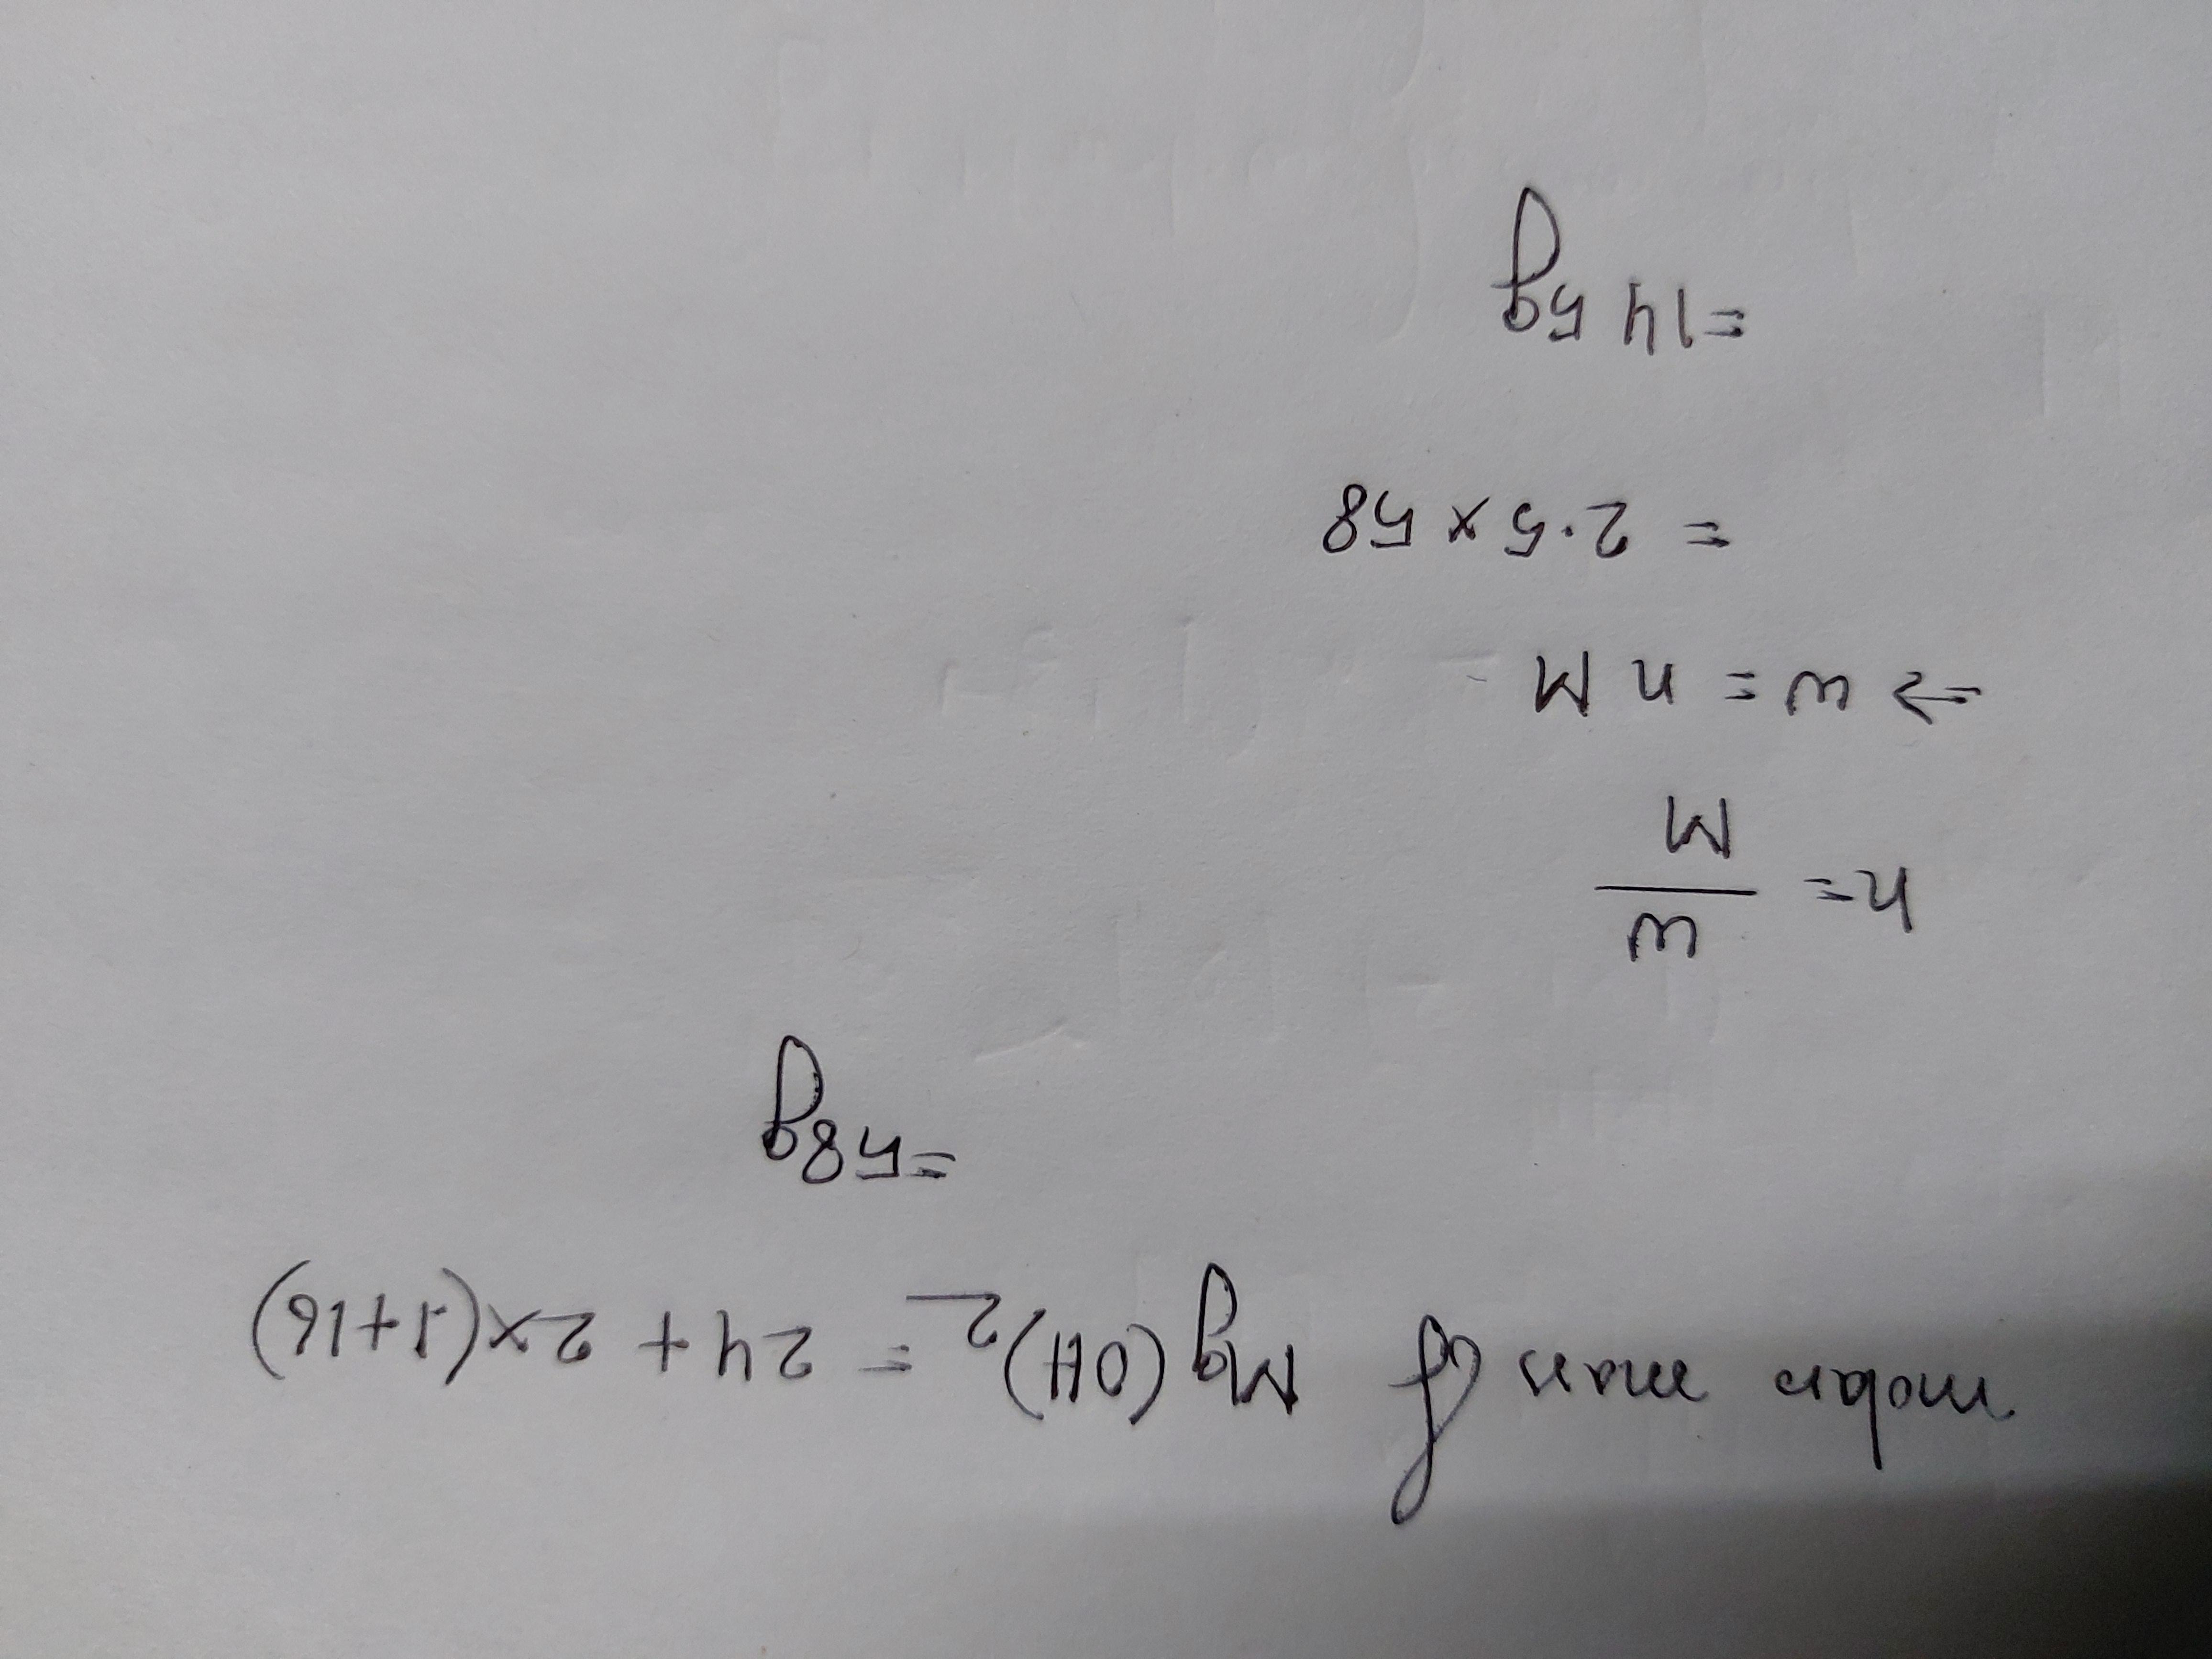 molar mass of Mg(OH)2 = 24 + 2×(1+16)
=58g
n= w/M
⇒ w = n M
= 2.5 × 58
=145g